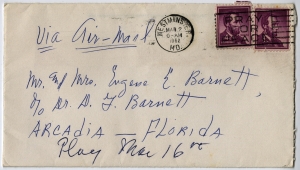 Via Air-Mail
WESTMINSTER
MAR 2
MD.
Mr. & Mrs. Eugene E. Barnett
c/o Mr. D. F. Barnett
ARCADIA - FLORIDA
Play Mar 16